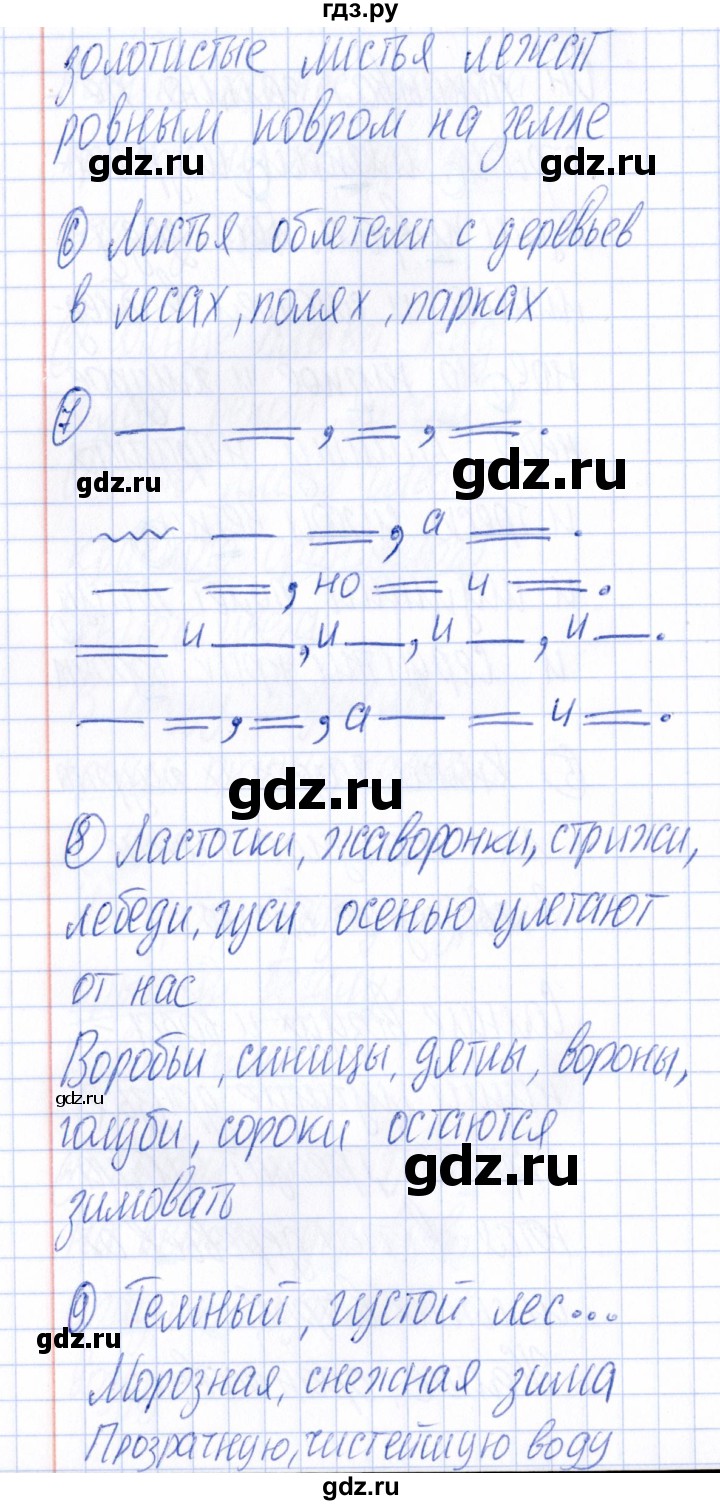 гдз.ру
золотистые листья лежат
ровным ковром на земле
gdz.ru gdz.ru
6 Листья облетели с деревьев
в лесах, полях, парках
7 — = , = , = .
gdz.ru gdz.ru
﹏ — = , а = .
— = , но = и = .
= и — , и — , и — , и — .
— = , = , а — = и = .
gdz.ru
8 Ласточки, жаворонки, стрижи,
лебеди, гуси осенью улетают
от нас
Воробьи, синицы, дятлы, вороны,
gdz.ru
голуби, сороки остаются
gdz.ru
зимовать
9 Темный, густой лес...
gdz.ru
Морозная, снежная зима
Прозрачную, чистейшую воду
gdz.ru